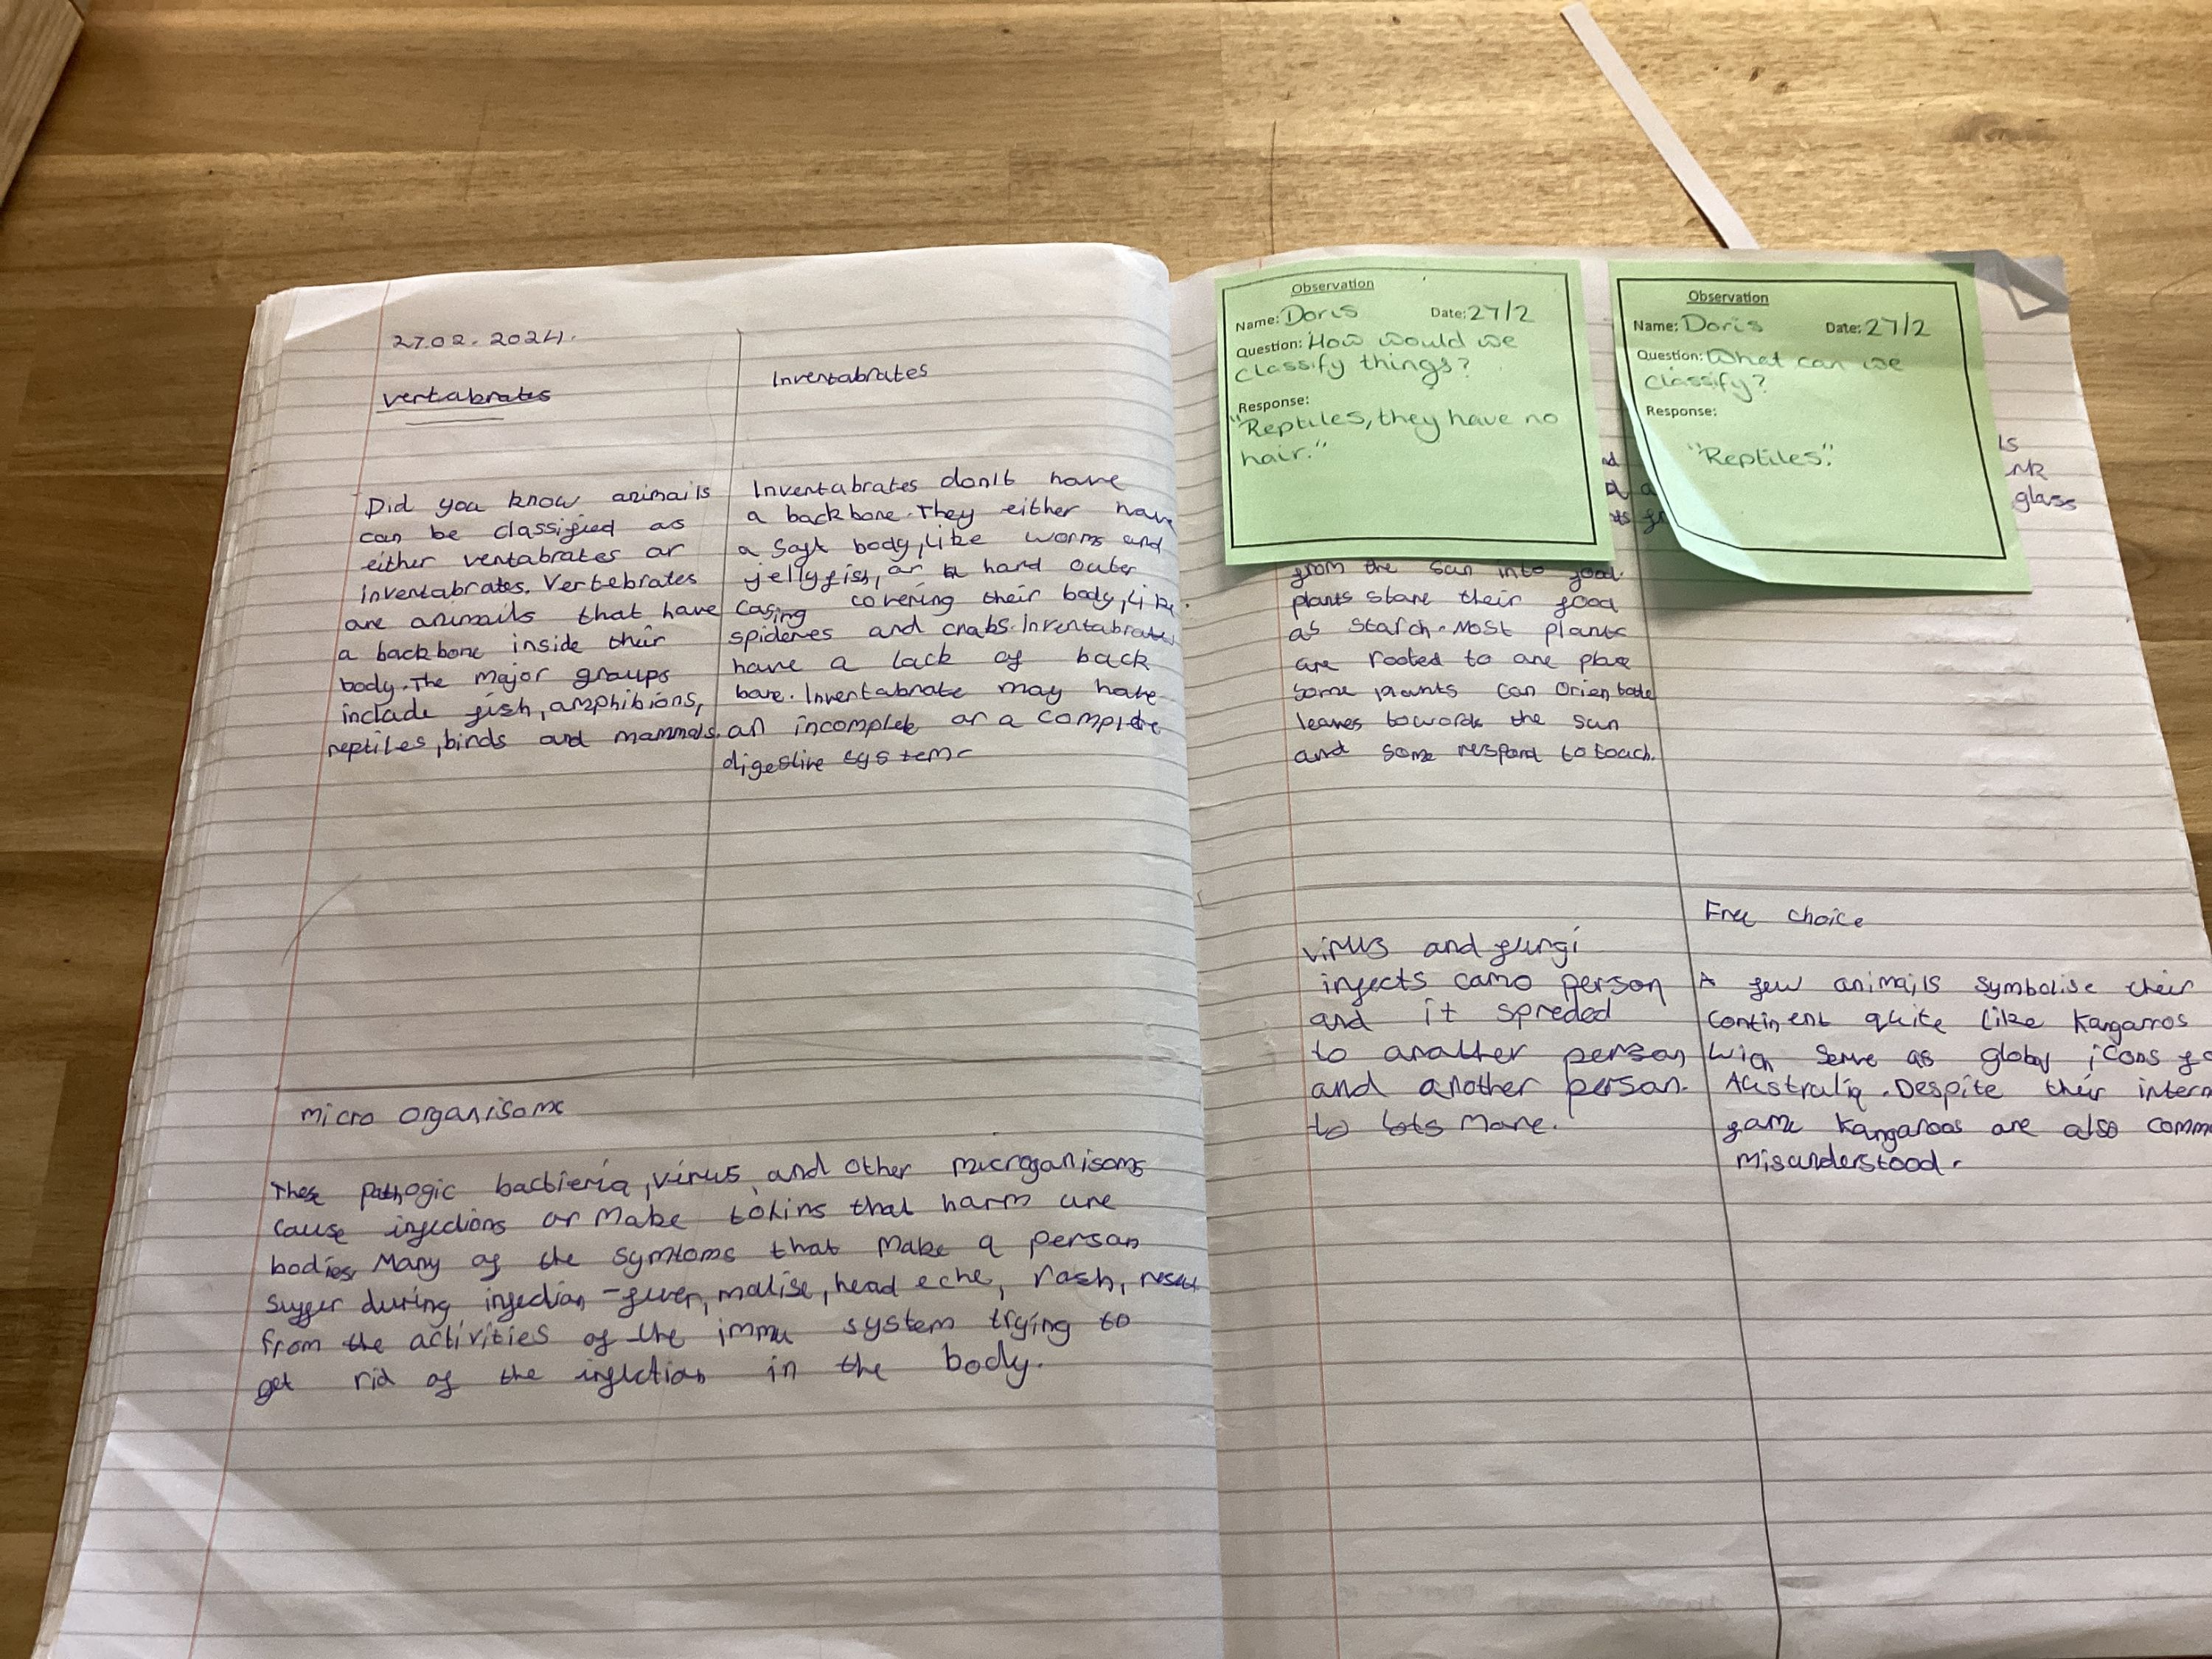 27.02.2024.
vertabrates
Did you know animails
can be classified as
either ventabrates or
inventabrates. Vertebrates
are animails that have
a backbone inside their
body. The major groups
include fish, amphibions,
reptiles, birds and mammals.
Inventabrates
Inventabrates don't have
a backbone. They either have
a soft body, like worms and
jellyfish, or a hard outer
casing covering their body, like
spideres and crabs. Inventabrates
have a lack of back
bone. Inventabrate may have
an incomplete or a complete
digestive system
micro organisoms
These pathogic bactieria, virus, and other microganisoms
cause infections or make toxins that harm are
bodies. Many of the symtoms that make a person
suffer during infection - fever, malise, head eche, rash, result
from the activities of the immu system trying to
get rid of the infection in the body.
Observation
Name: Doris Date: 27/2
Question: How would we
classify things?
Response:
"Reptiles, they have no
hair."
Observation
Name: Doris Date: 27/2
Question: What can we
classify?
Response:
"Reptiles."
glass
from the sun into food
plants store their food
as starch. Most plants
are rooted to one place
some plants can orientate
leaves towards the sun
and some respond to touch.
virus and fungi
infects camo person
and it spreded
to another person
and another person.
to lots more.
Free choice
A few animails symbolise their
continent quite like Kangarros
wich serve as global icons
Australia. Despite their
fame kangaroos are also
misunderstood.